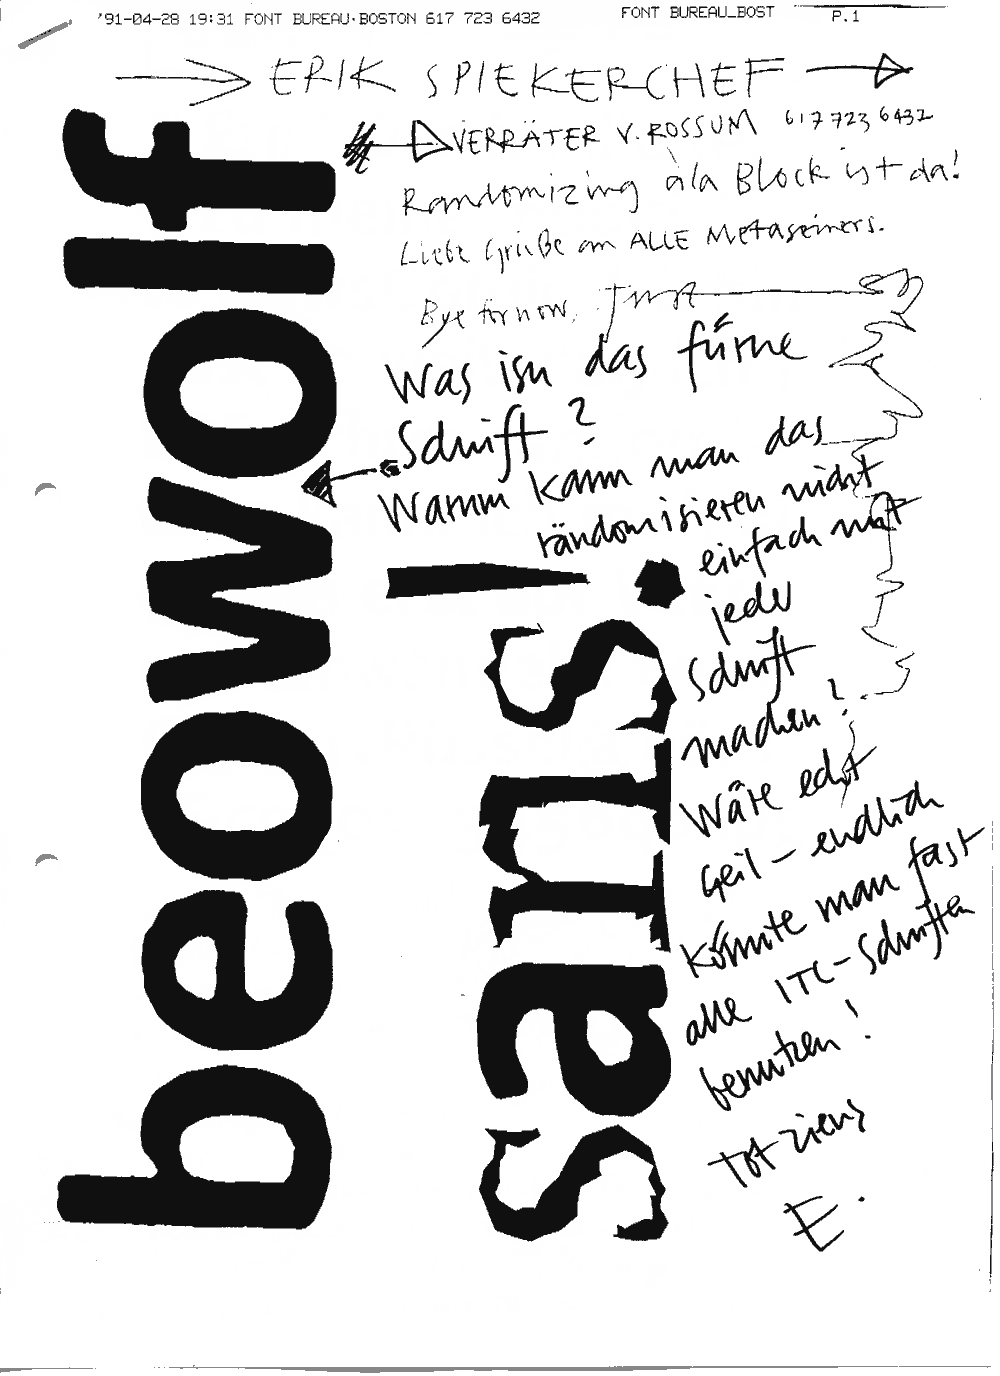 '91-04-28 19:31 FONT BUREAU·BOSTON 617 723 6432
FONT BUREAU_BOST
P.1
ERIK SPIEKERCHEF
VERRÄTER V. ROSSUM 617 723 6432
Randomizing à la Block ist da!
Liebe Grüße an ALLE Metaseiners.
Bye for now, Just
Was isn das fürne
Schrift?
Warum kann man das
rändomisieren nicht
einfach mit
jeder
Schrift
machen?
Wäre echt
Geil – endlich
könnte man fast
alle ITC-Schriften
benutzen!
Tot ziens
E.
beowolf
sans!